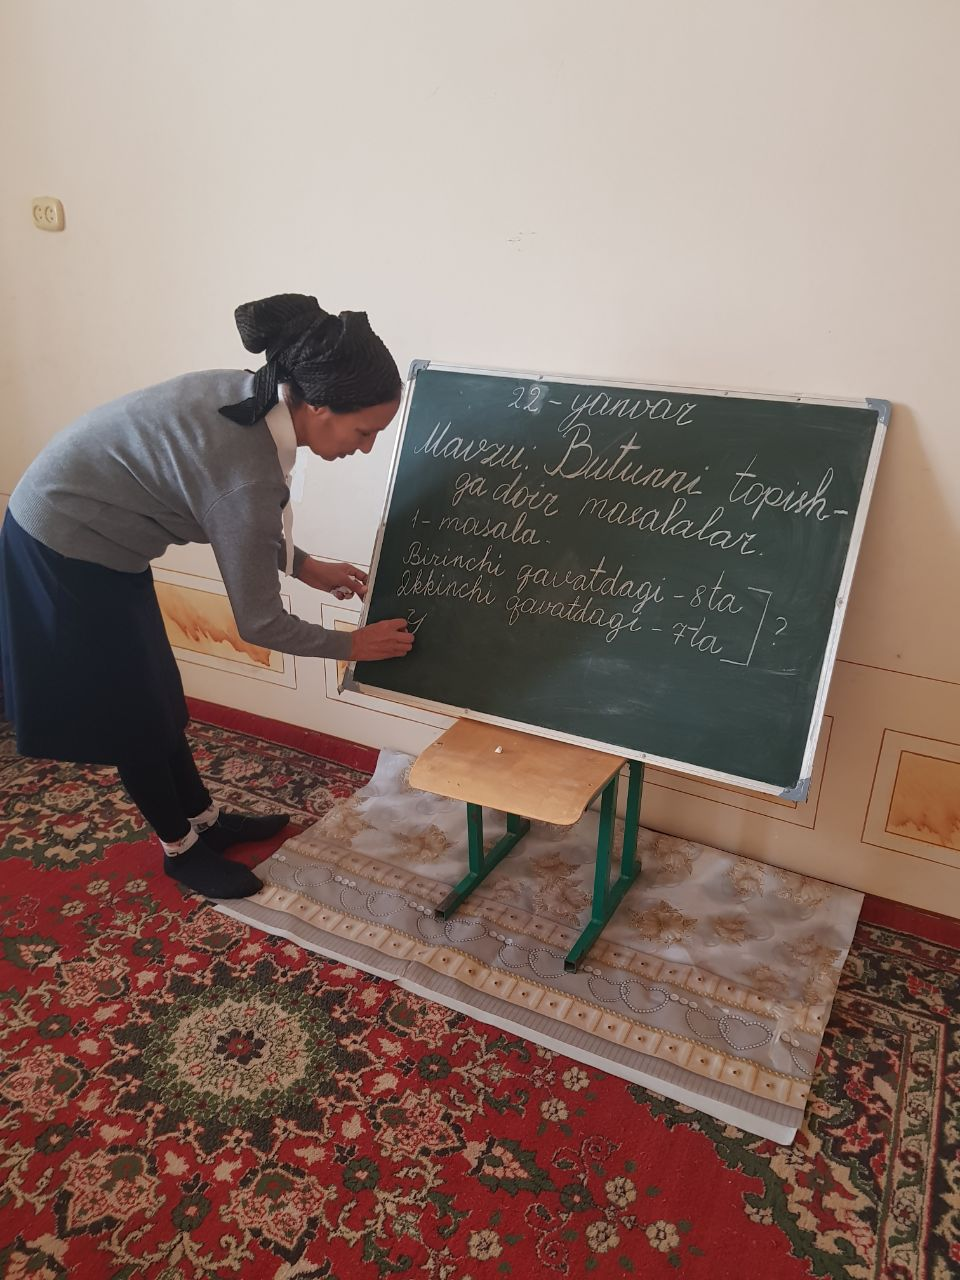 22 - yanvar
Mavzu: Butunni topish-
ga doir masalalar.
1 - masala.
Birinchi qavatdagi - 8 ta
Ikkinchi qavatdagi - 7 ta
?